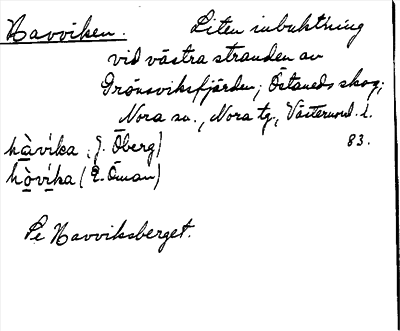 Havviken. Liten inbuktning
vid västra stranden av
Grönsviksfjärden; Östaneds skog;
Nora sn., Nora tg, Västernorrl. l.
hàvíka. (J. Öberg) 83.
hòvíka (E. Öman)
Se Havviksberget.